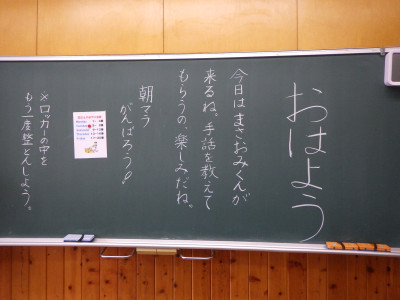 おはよう
今日はまさおみくんが
来るね。手話を教えて
もらうの、楽しみだね。
朝マラ
がんばろう!
×ロッカーの中を
もう一度整とんしよう。